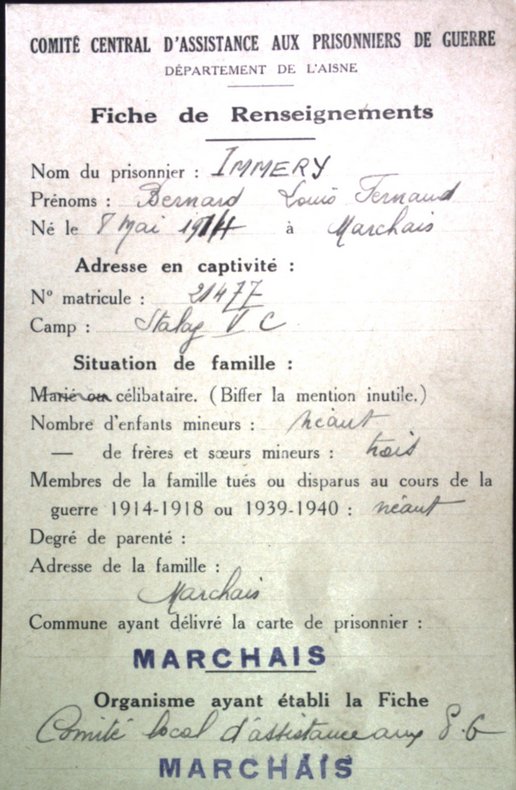 COMITÉ CENTRAL D'ASSISTANCE AUX PRISONNIERS DE GUERRE
DÉPARTEMENT DE L'AISNE
Fiche de Renseignements
Nom du prisonnier : IMMERY
Prénoms : Bernard Louis Fernand
Né le 8 Mai 1914 à Marchais
Adresse en captivité :
N° matricule : 21477
Camp : Stalag V C
Situation de famille :
Marié ou célibataire. (Biffer la mention inutile.)
Nombre d'enfants mineurs : néant
— de frères et sœurs mineurs : trois
Membres de la famille tués ou disparus au cours de la
guerre 1914-1918 ou 1939-1940 : néant
Degré de parenté :
Adresse de la famille :
Marchais
Commune ayant délivré la carte de prisonnier :
MARCHAIS
Organisme ayant établi la Fiche
Comité local d'assistance aux P.G
MARCHAIS